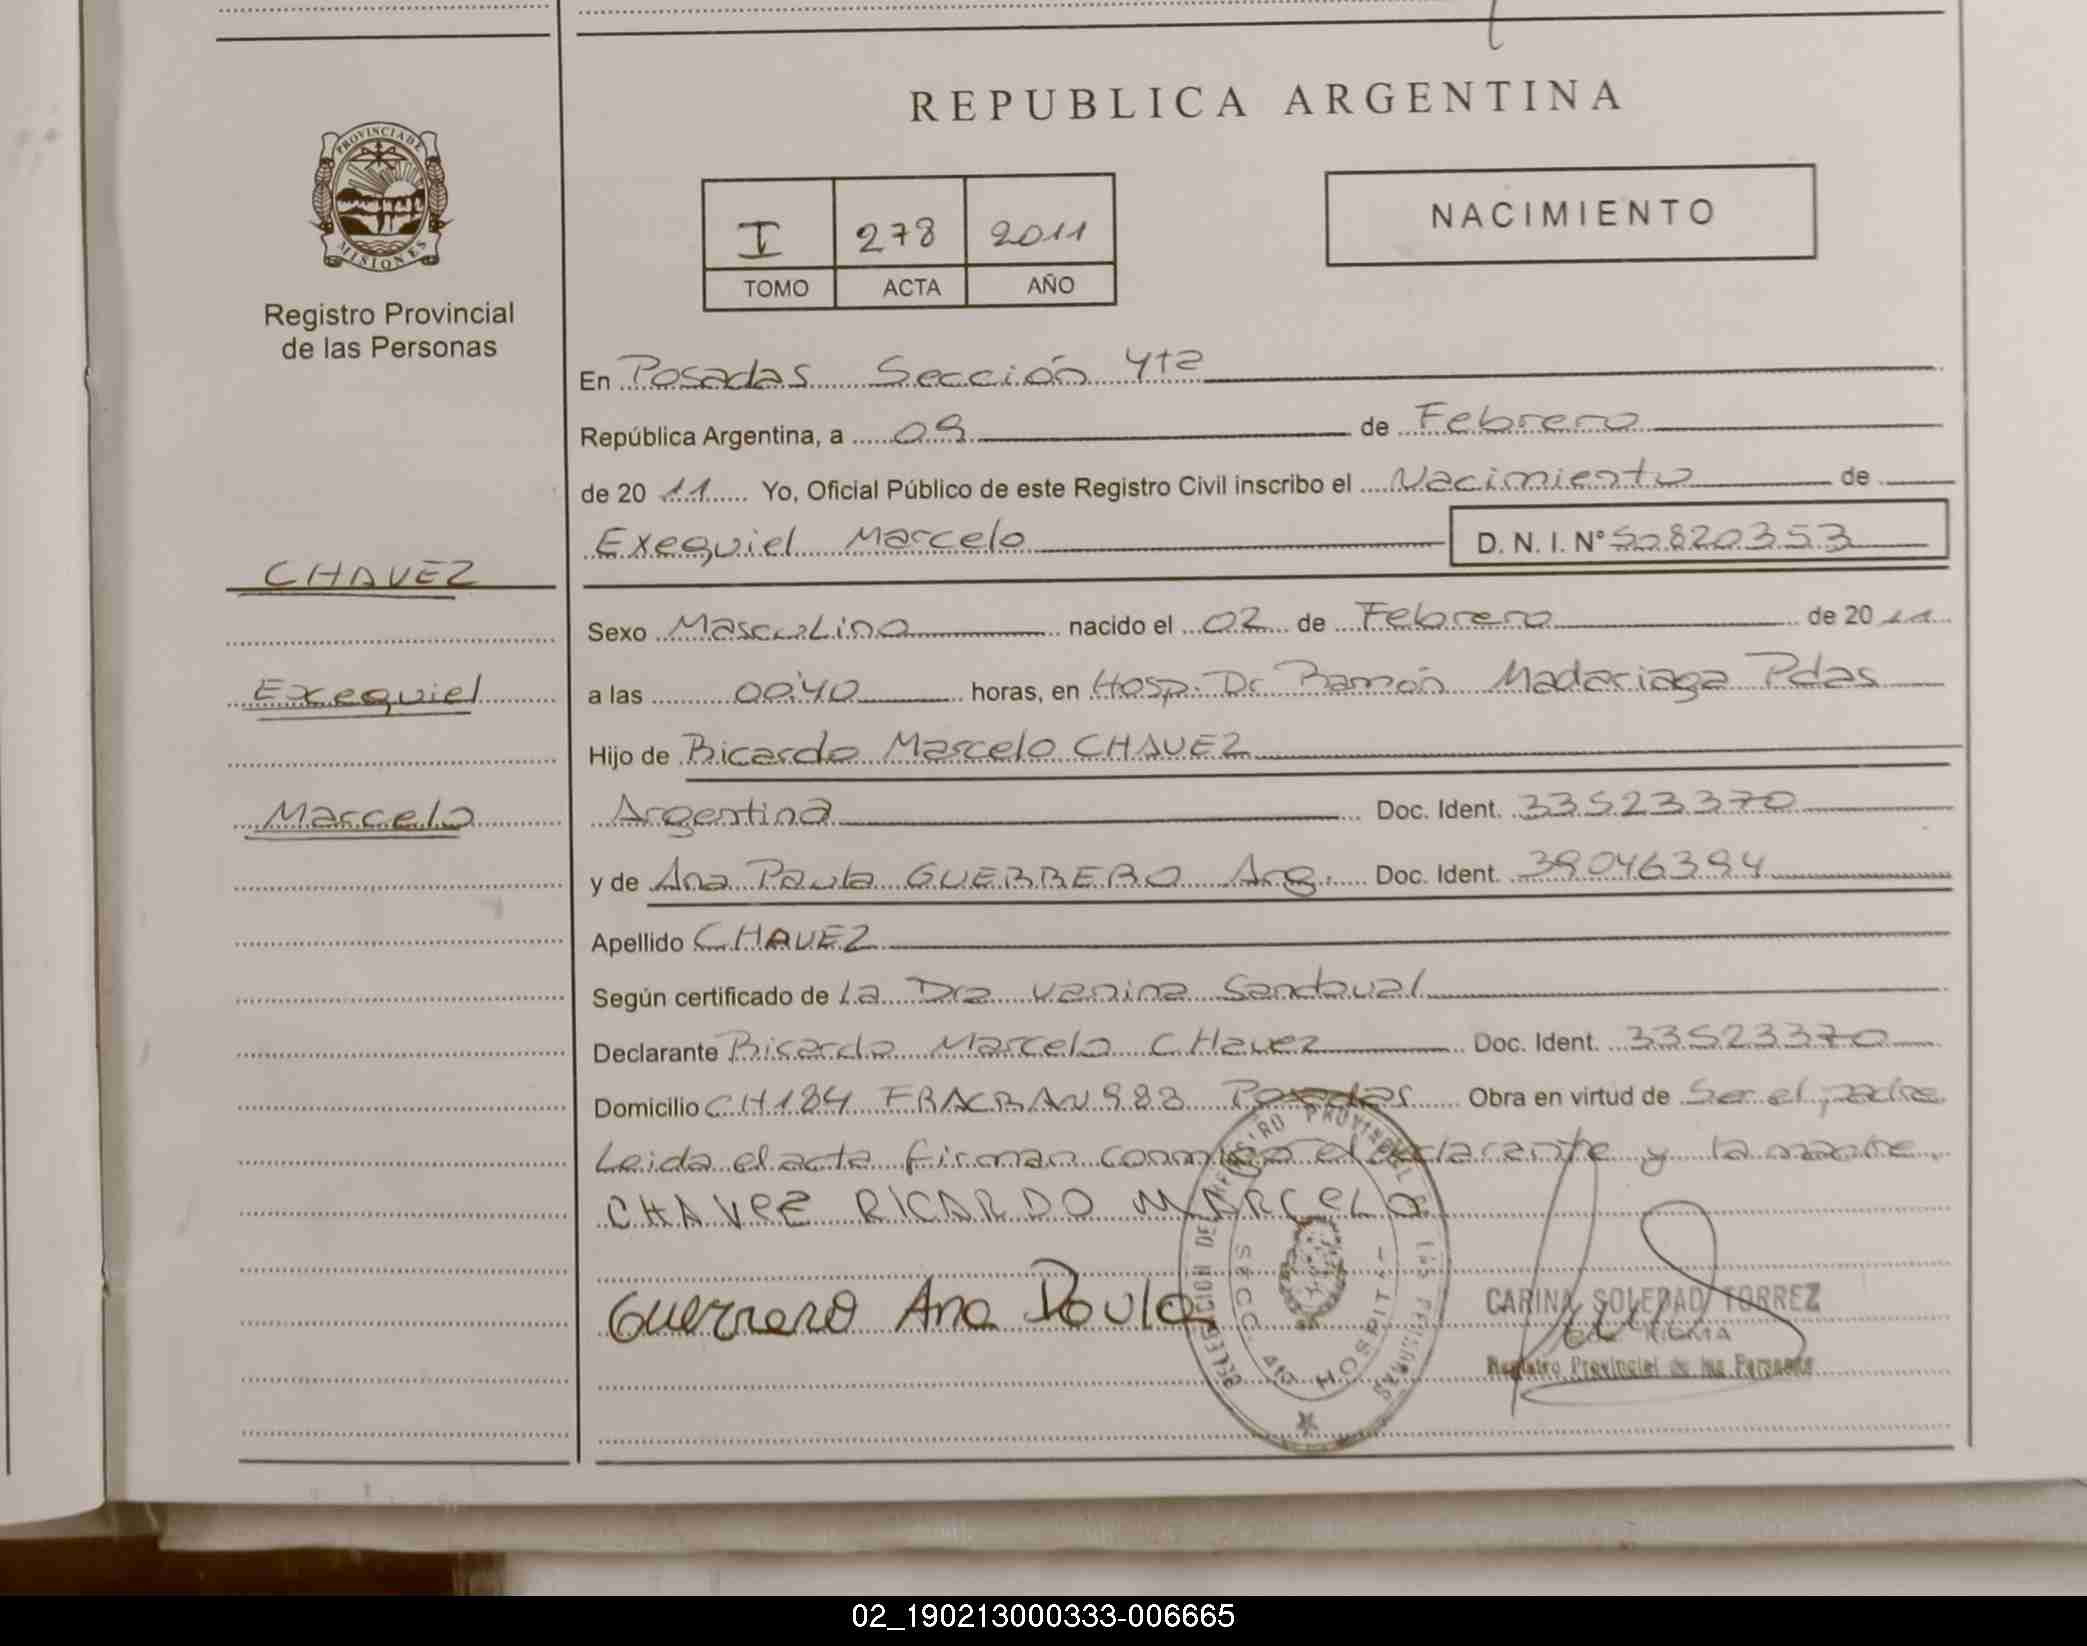 REPUBLICA ARGENTINA
PROVINCIA DE MISIONES
Registro Provincial
de las Personas
I 278 2011
TOMO ACTA AÑO
NACIMIENTO
En Posadas Sección 4ta
República Argentina, a 09 de Febrero
de 2011 Yo, Oficial Público de este Registro Civil inscribo el Nacimiento de
Exequiel Marcelo D. N. I. N° 50820353
CHAVEZ
Exequiel
Marcelo
Sexo Masculino nacido el 02 de Febrero de 2011
a las 00:40 horas, en Hosp. Dr Ramón Madariaga Pdas
Hijo de Ricardo Marcelo CHAVEZ
Argentina Doc. Ident. 33523370
y de Ana Paula GUERRERO Arg. Doc. Ident. 39046394
Apellido CHAVEZ
Según certificado de La Dra Vanina Sandoval
Declarante Ricardo Marcelo CHavez Doc. Ident. 33523370
Domicilio CH184 FRACRAN 983 Posadas Obra en virtud de Ser el padre
Leida el acta firman conmigo el declarante y la madre.
CHAVEZ RICARDO MARCELO
Guerrero Ana Paula
DELEGACION DEL REGISTRO PROVINCIAL DE LAS PERSONAS
SECC. 4ta HOSPIT.
CARINA SOLEDAD TORREZ
Registro Provincial de las Personas
02_190213000333-006665